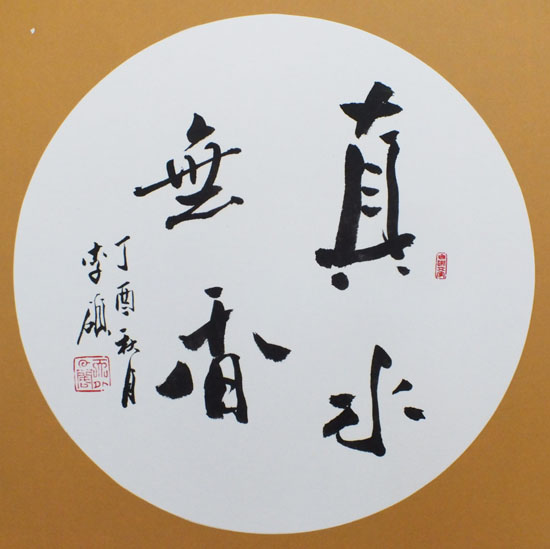 真水
無香
丁酉秋月
李硕